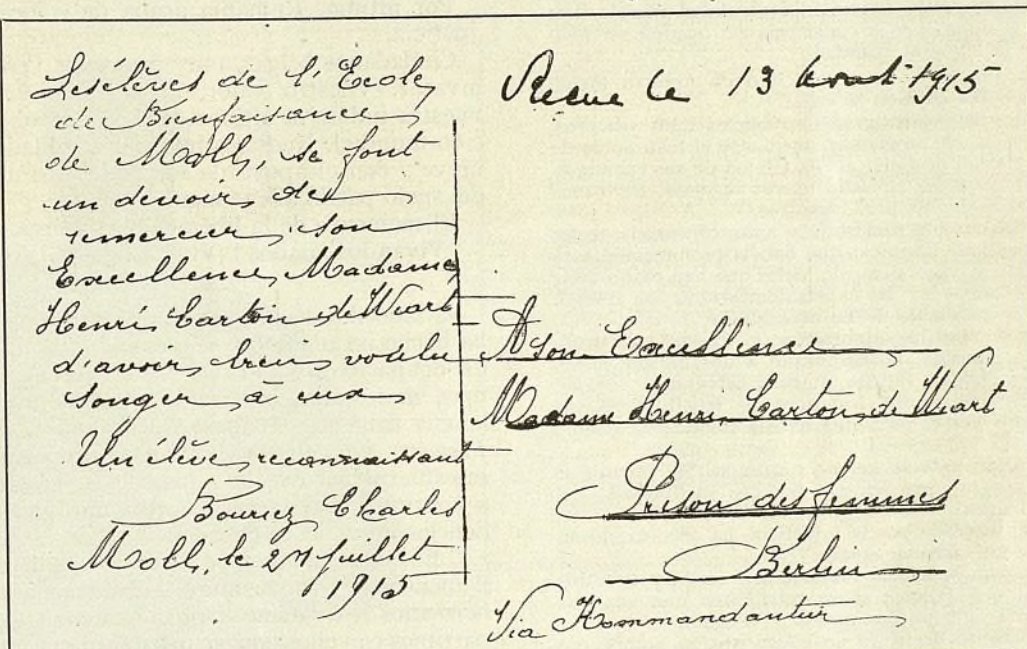 Les élèves de l'École
de Bienfaisance
de Moll, se font
un devoir de
remercier son
Excellence, Madame
Henri Carton de Wiart
d'avoir bien voulu
songer à eux
Un élève reconnaissant
Bouriez Charles
Moll, le 27 Juillet
1915
Recue le 13 Aout 1915
A son Excellence
Madame Henri Carton de Wiart
Prison des femmes
Berlin
Via Kommandantur